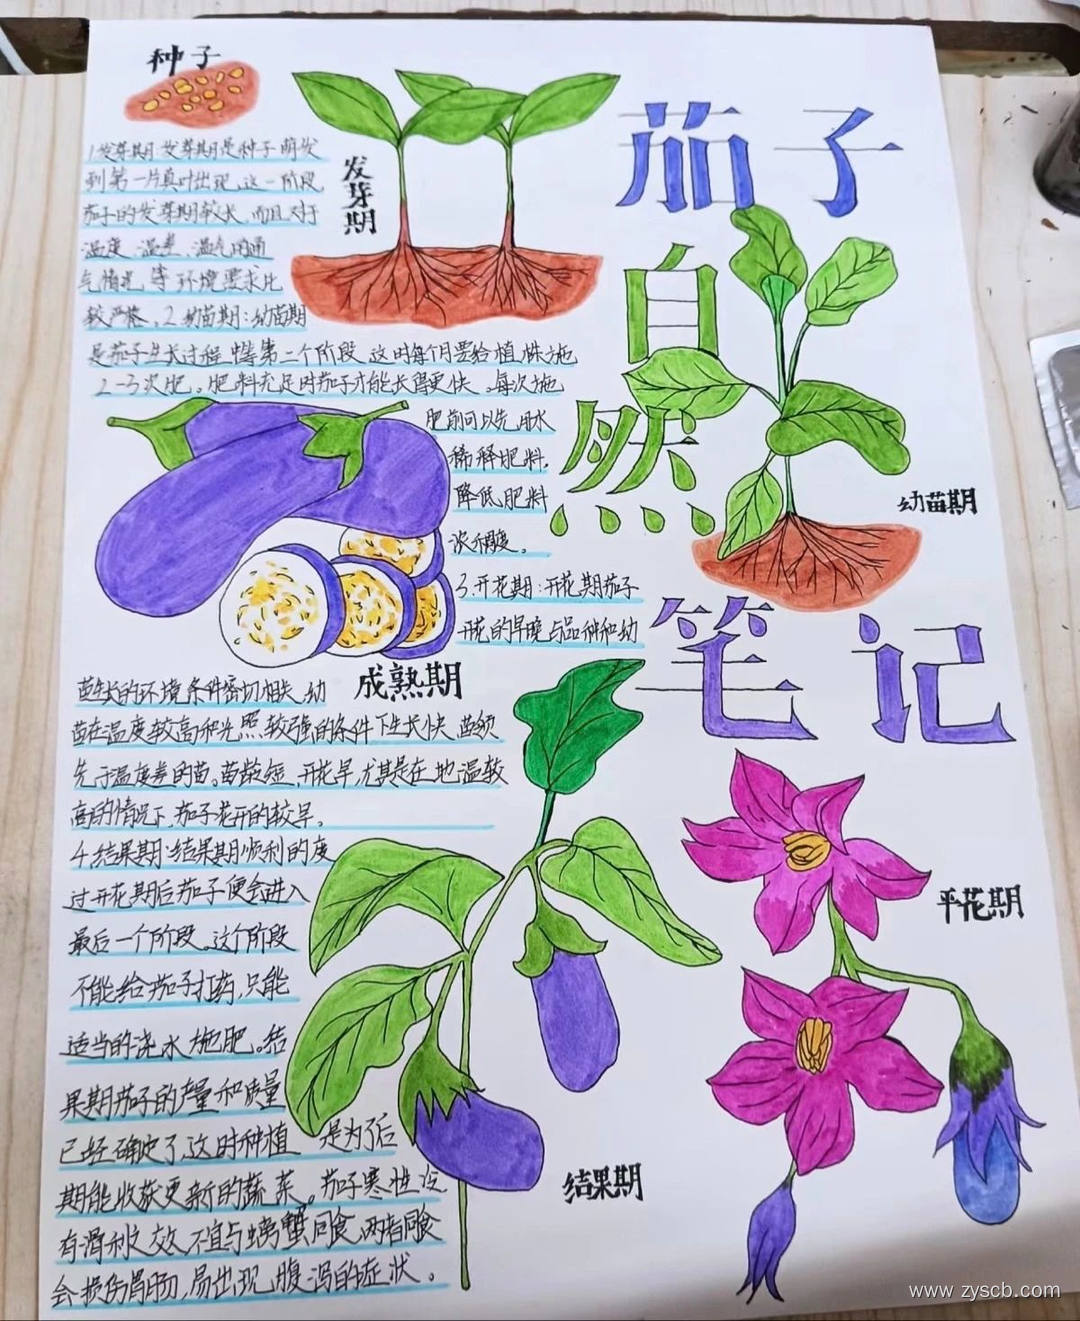 种子
茄子
自然
笔记
发芽期
1发芽期:发芽期是种子萌发
到第一片真叶出现,这一阶段,
茄子的发芽期较长,而且对于
温度、湿差、湿气的通
气情况等环境需求比
较严格。2.幼苗期:幼苗期
是茄子生长过程中等第二个阶段,这时每个月要给植株施
2-3次肥。肥料充足时茄子才能长得更快。每次施
肥前可以先用水
稀释肥料,
降低肥料
浓度。
幼苗期
3.开花期:开花期茄子
开花的早晚与品种和幼
苗生长的环境条件密切相关,幼
苗在温度较高和光照较强的条件下生长快,苗龄
先于温度差的苗。苗龄短,开花早,尤其是在地温较
高的情况下,茄子花开的较早。
成熟期
4.结果期:结果期顺利的度
过开花期后茄子便会进入
最后一个阶段,这个阶段
不能给茄子打药,只能
适当的浇水施肥。结
果期茄子的产量和质量
已经确定了,这时种植 是为了后
期能收获更新的蔬菜。茄子寒性冷
有滑利之效,不宜与螃蟹同食,两者同食
会损伤胃肠,易出现腹泻的症状。
开花期
结果期
www.zyscb.com